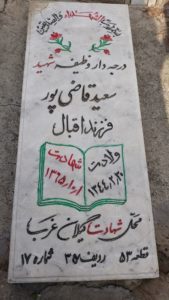 درجه دار وظیفه شهید
سعید قاضی پور
فرزند اقبال
ولادت
۱۳۴۴،۲،۲۰
شهادت
۱۳۶۵
محل شهادت گیلان غرب
قطعه ۵۳ ردیف ۳۵ شماره ۱۷